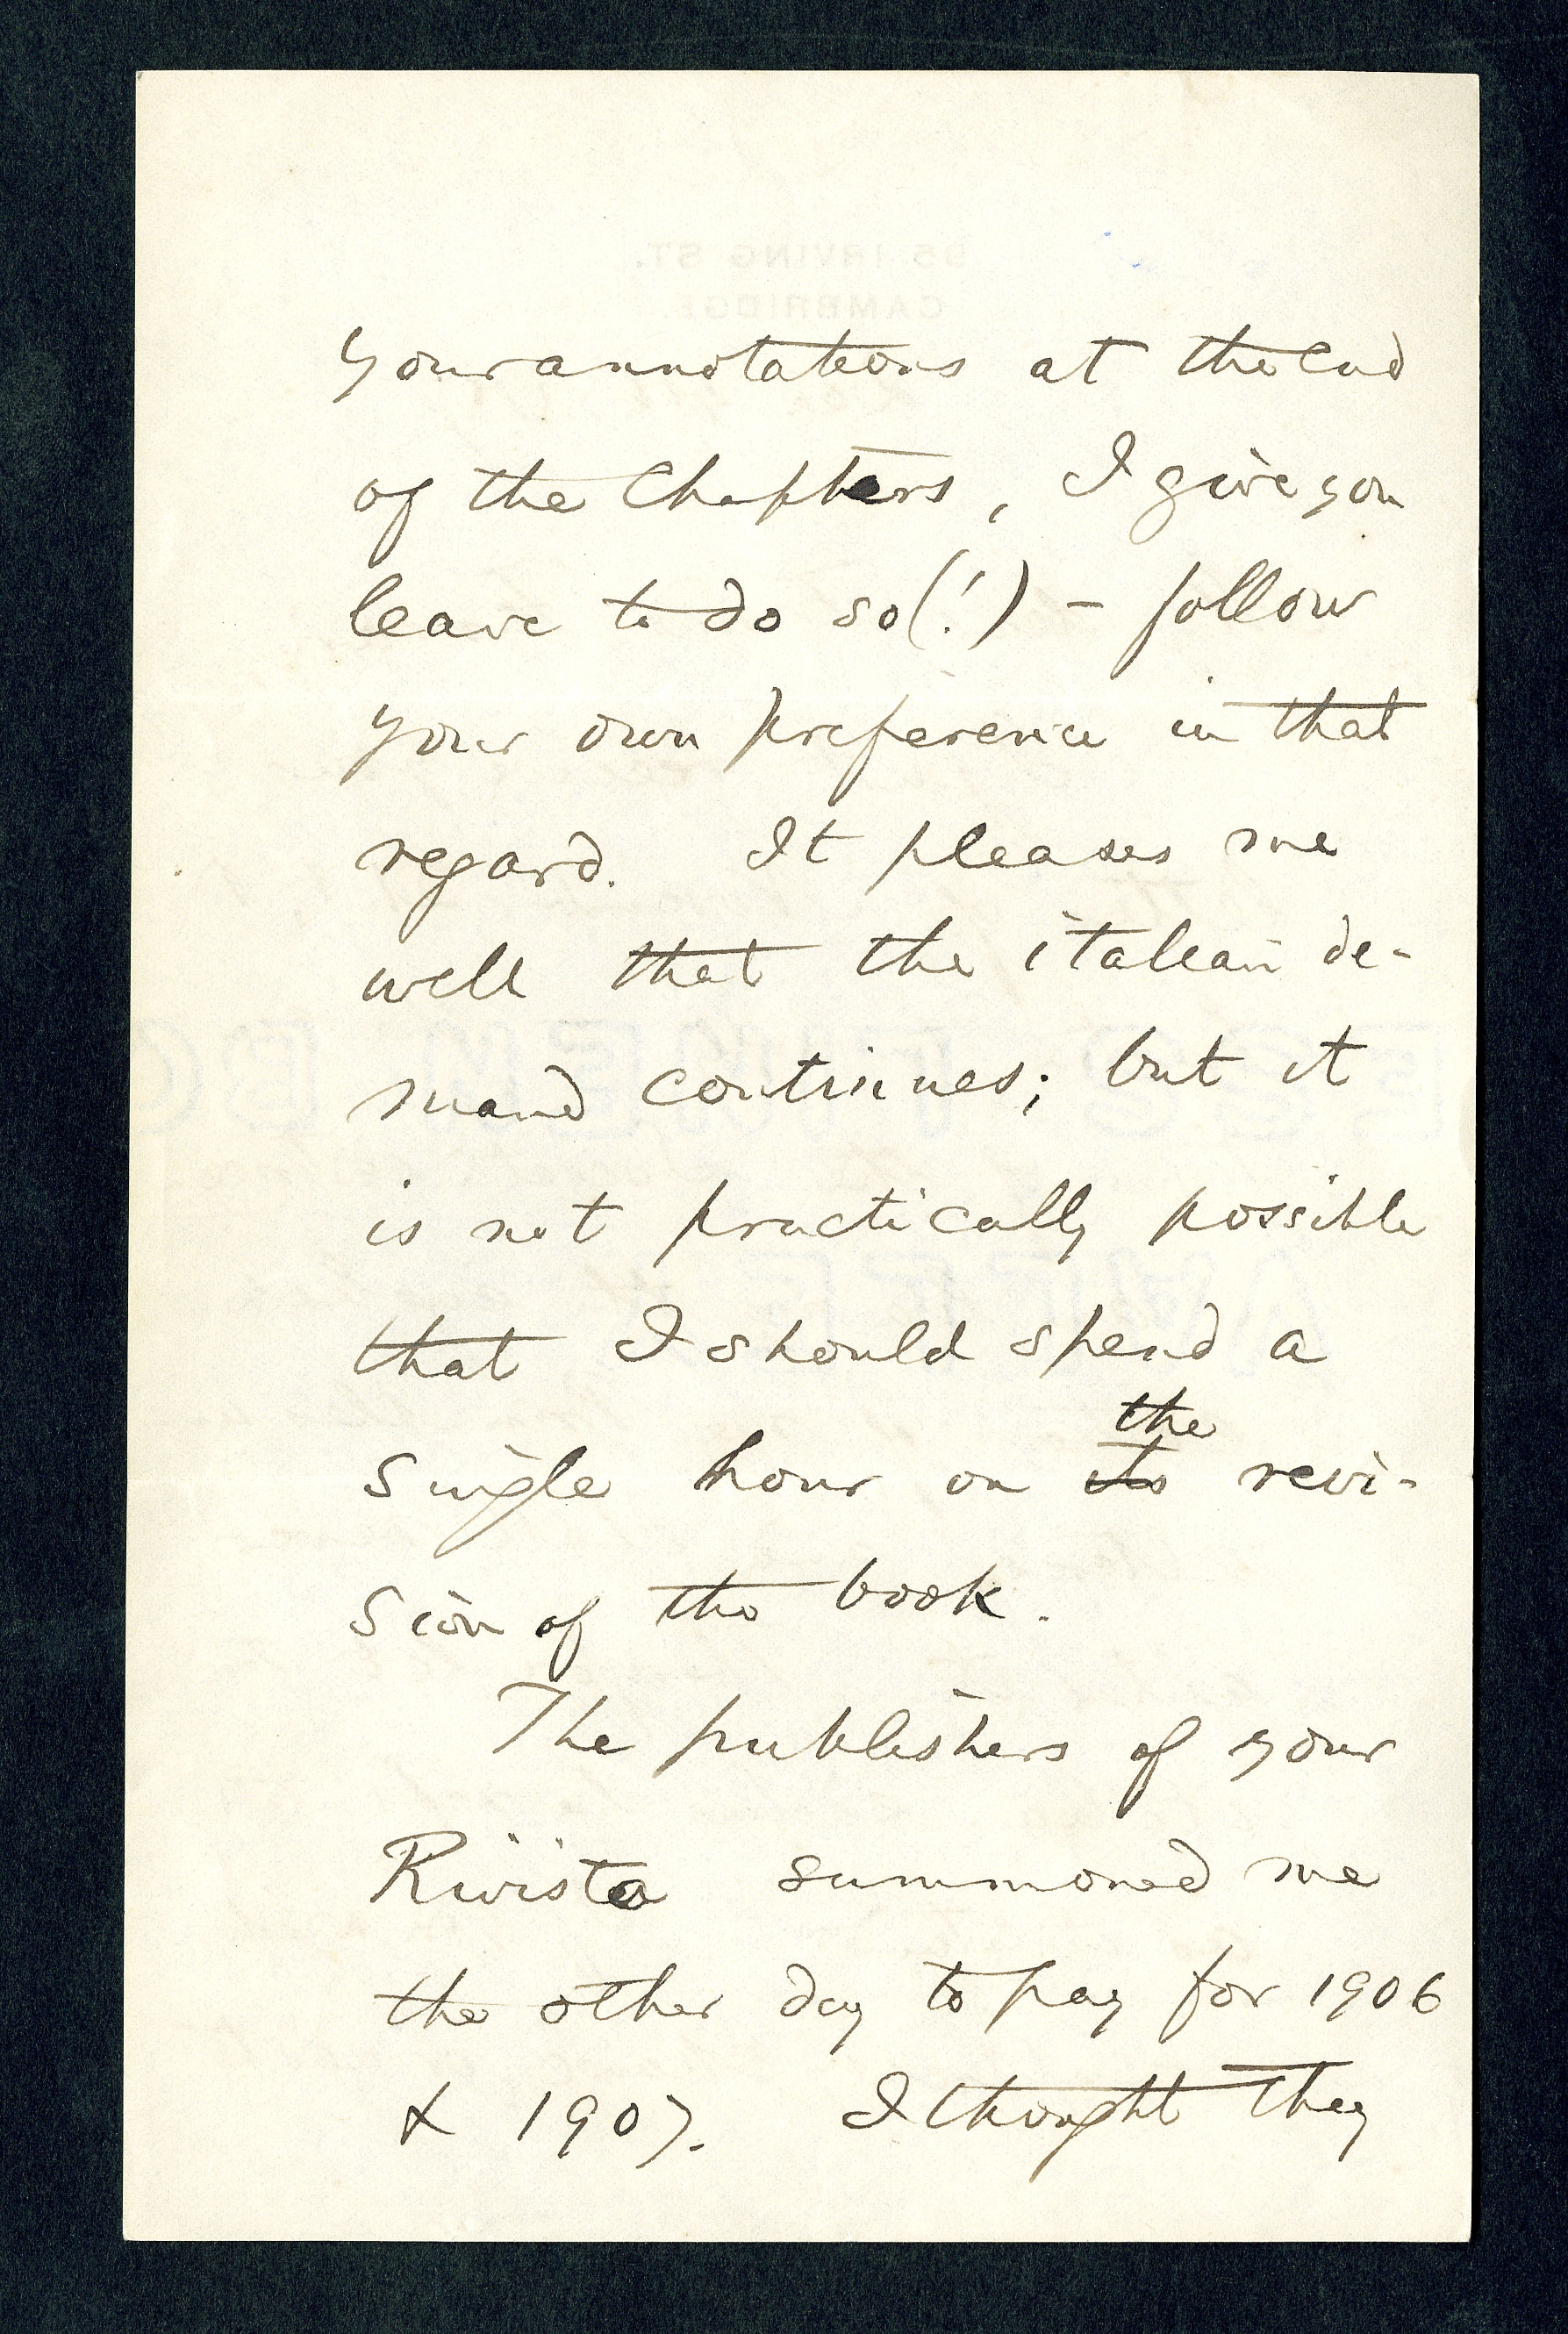 your annotations at the end
of the chapters, I give you
leave to do so (!) – follow
your own preference in that
regard. It pleases me
well that the italian de-
mand continues; but it
is not practically possible
that I should spend a
the
single hour on its revi-
sion of the book.
The publishers of your
Rivista summoned me
the other day to pay for 1906
& 1907. I thought they